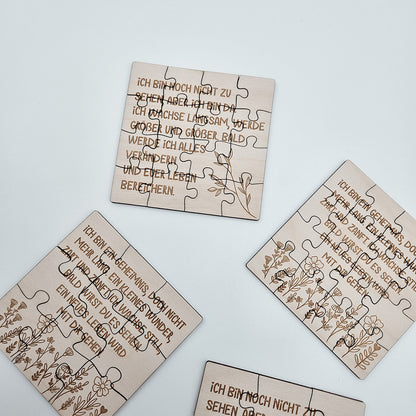 ICH BIN NOCH NICHT ZU
SEHEN, ABER ICH BIN DA.
ICH WACHSE LANGSAM, WERDE
GRÖßER UND GRÖßER. BALD
WERDE ICH ALLES
VERÄNDERN
UND EUER LEBEN
BEREICHERN.
ICH BIN EIN GEHEIMNIS, DOCH NICHT
MEHR LANG, EIN KLEINES WUNDER,
ZART UND
ICH WACHSE STILL,
BALD WIRST DU ES SEHEN,
EIN NEUES LEBEN WIRD
MIT DIR GEHEN.
ICH BIN EIN GEHEIMNIS,
MEHR LANG, EIN KLEINES
ZART UND
BALD WIRST DU ES
EIN NEUES LEBEN
MIT DIR
ICH BIN NOCH NICHT ZU
SEHEN, ABER